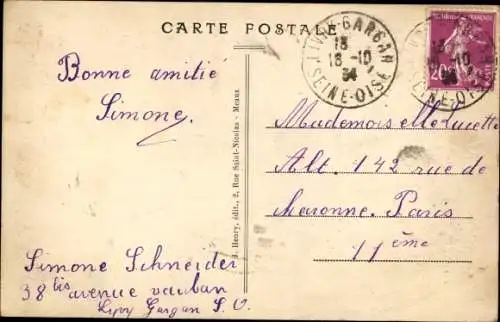 CARTE POSTALE
LIVRY-GARGAN
13
16-10
34
SEINE-OISE
20c
Bonne amitié
Simone.
Mademoiselle Lucette
Alt. 142 rue de
Maronne. Paris
11ème
Simone Schneider
38 bis avenue vauban
Livry Gargan S. O.
Henry, édit., 2, Rue Saint-Nicolas - Meaux